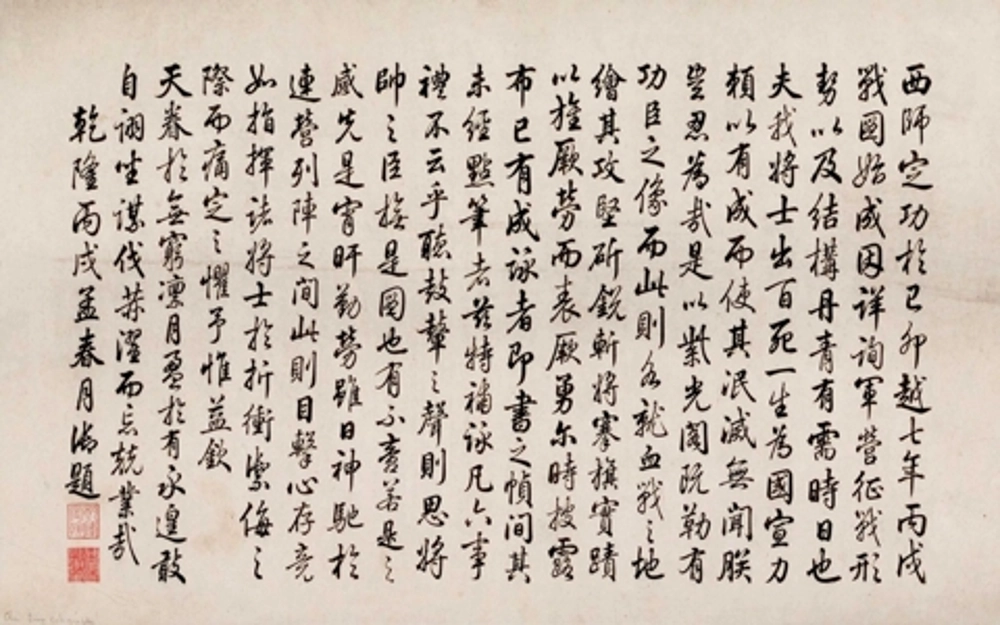 西師定功於己卯越七年丙戌
戰圖始成因詳詢軍營征戰形
勢以及結構丹青有需時日也
夫我將士出百死一生為國宣力
賴以有成而使其泯滅無聞朕
豈忍為哉是以紫光閣既勒有
功臣之像而此則各就血戰之地
繪其攻堅斫銳斬將搴旗實蹟
以旌厥勞而表厥勇尒時披露
布已有成詠者即書之幀間其
未經點筆者茲特補詠凡六事
禮不云乎聽鼓鼙之聲則思將
帥之臣撫是圖也有不啻若是之
感先是宵旰勤勞雖日神馳於
連營列陣之間此則目擊心存竟
如指揮諸將士於折衝禦侮之
際而痛定之懼予惟益欽
天眷於無窮凜月盈於有永遑敢
自詡坐謀伐莽濯而忘兢業哉
乾隆丙戌孟春月御題